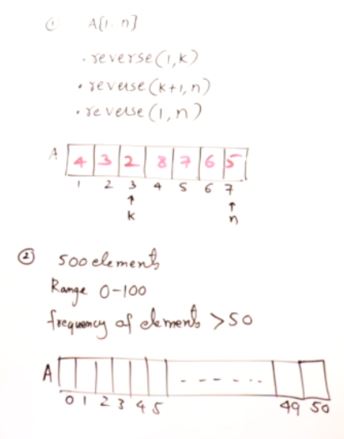 ① A[1..n]
• reverse(1,k)
• reverse(k+1,n)
• reverse(1,n)
A 4 3 2 8 7 6 5
1 2 3 4 5 6 7
↑ ↑
k n
② 500 elements
Range 0-100
frequency of elements >50
A - - - - - -
0 1 2 3 4 5 49 50